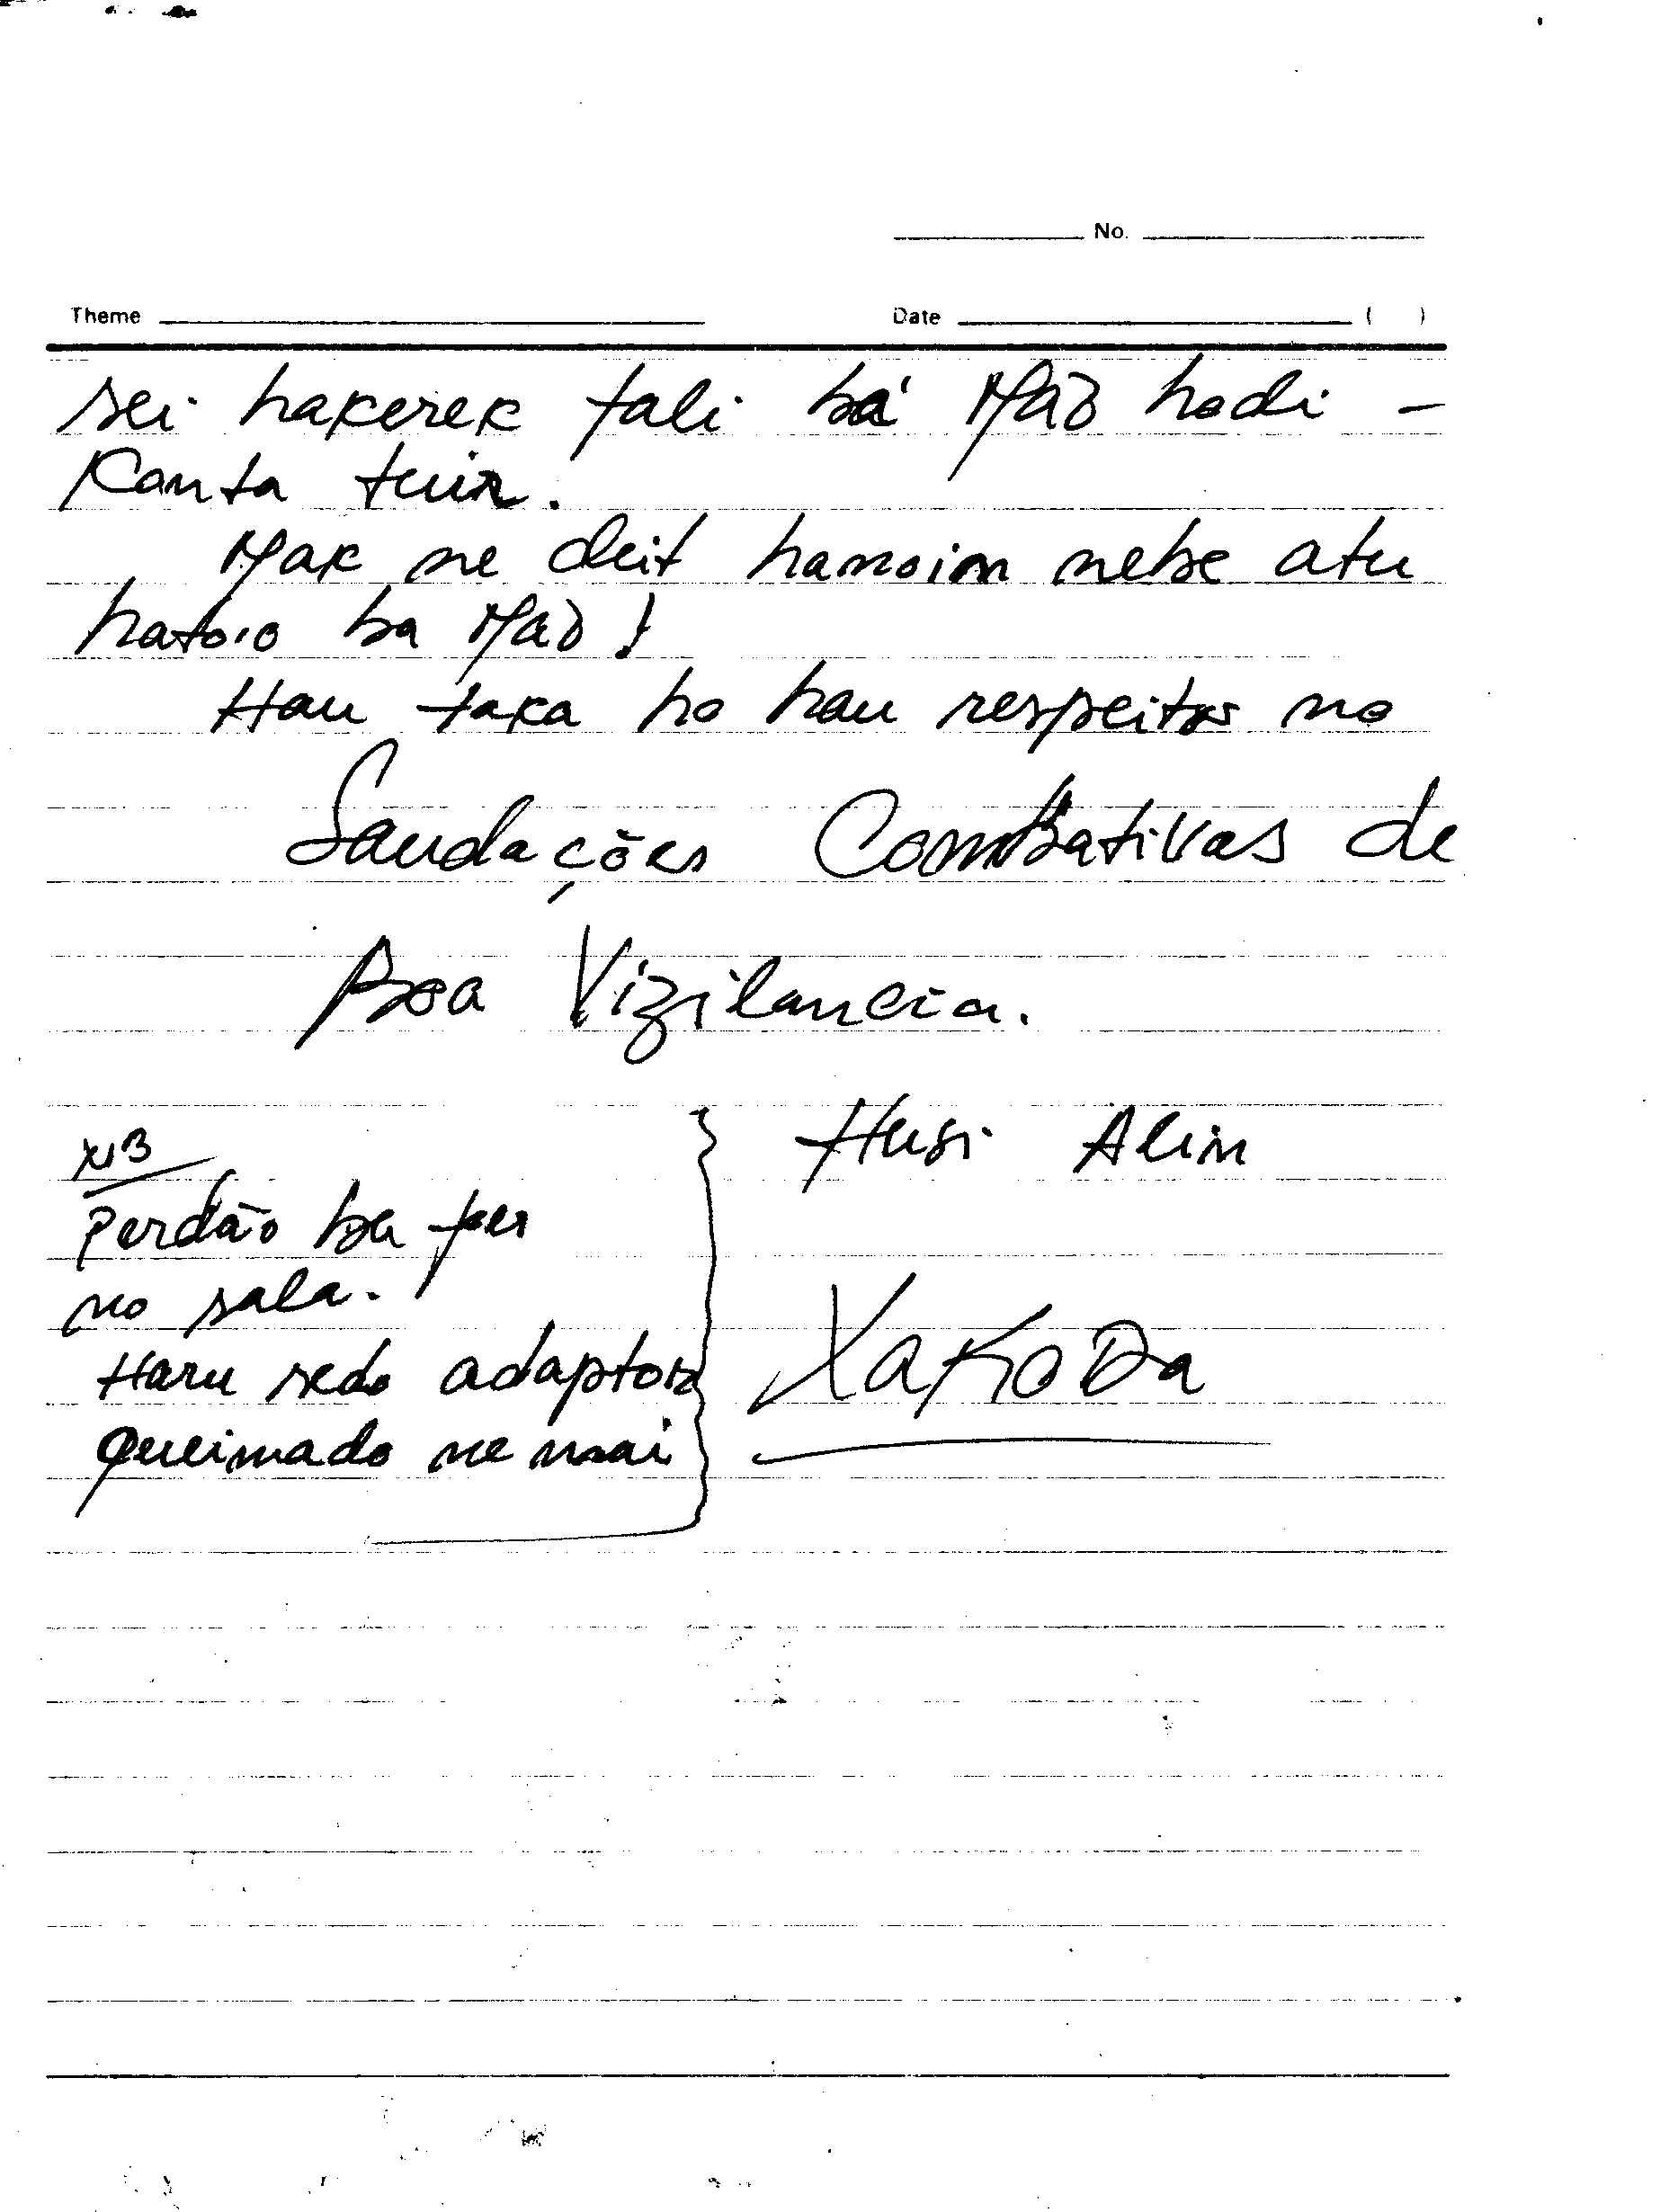 No.
Theme Date ( )
sei hakerek fali bá Maò hodi -
Konta tuir.
Mak ne deit hanoin nebe atu
hato'o ba Maò !
Hau taka ho hau respeitos no
Saudações Combativas de
Boa Vizilancia.
NB
Perdão ba
no sala.
Haru sedo adaptor
Queimado ne mai
Husi Alin
XaKoDa